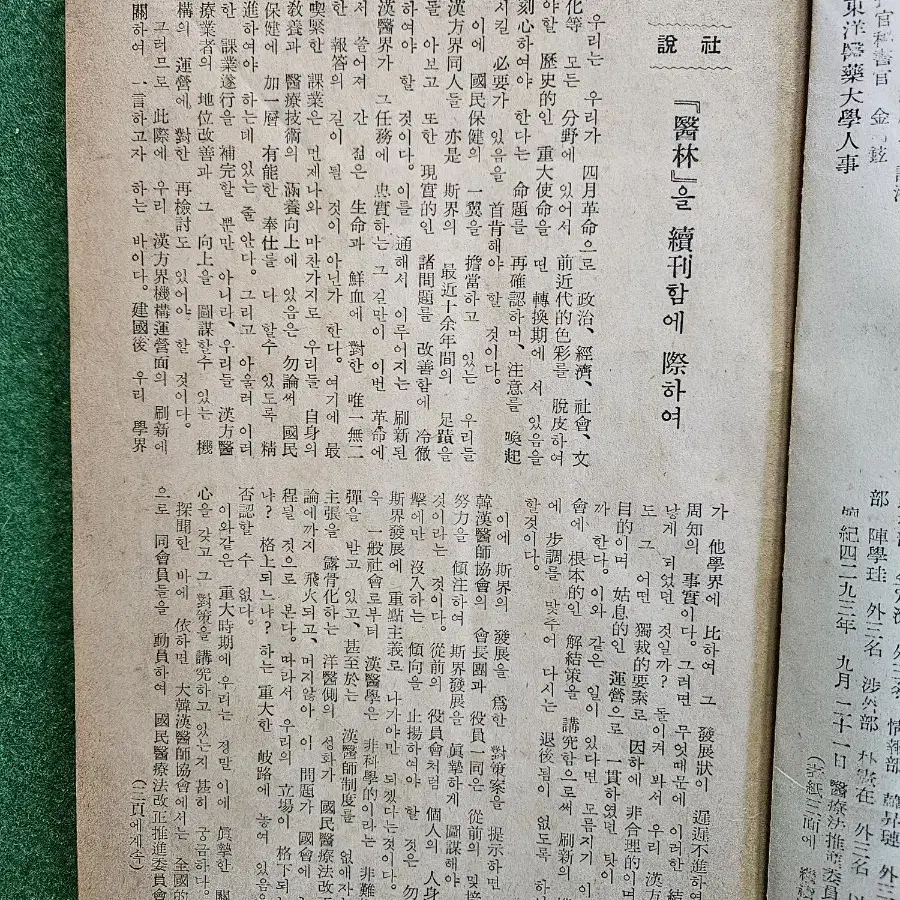 官秘書官 金
東洋醫藥大學人事
部 陣學珪 外三名 涉外部 外三名
紀四二九三年 九月二十一日 醫療法推進委員
社說
『醫林』을 續刊함에 際하여
우리는 우리가 四月革命으로 政治、經濟、社會、文
化等 모든 分野에 있어서 前近代的色彩를 脫皮하여
야할 歷史的인 重大使命을 띤 轉換期에 서 있음을
刻心하여야 한다는 命題를 再確認하며、注意를 喚起
시킬 必要가 있음을 首肯해야 할 것이다。
이에 國民保健의 一翼을 擔當하고 있는 우리들
漢方界同人들 亦是 斯界의 最近十余年間의 足蹟을
아보고 또한 現實的인 諸問題를 改善함에 冷徹
하여야 할 것이다。이를 通해서 이루어지는 刷新된
漢醫界가 그任務에 忠實하는 그길만이 이번 革命에
서 쓸어져 간 젊은 生命과 鮮血에 對한 唯一無二
한 報答의 길이 될 것이 아닌가 한다。여기에 最
喫緊한 課業은 먼제나와 마찬가지로 우리들 自身의
敎養과 醫療技術의 涵養向上에 있음은 勿論써 國民
保健에 加一層 有能한 奉仕를 다 할수 있도록 精
進하여야 하는데 있는 줄 안다。그리고 아울러 이러
한 課業遂行을 補完할 뿐만 아니라、우리들 漢方醫
療業者의 地位改善과 그 向上을 圖謀할수 있는 機
構의 運營에 對한 再檢討도 있어야 할 것이다。
그러므로 此際에 우리 漢方界機構運營面의 刷新에
關하여 一言하고자 하는 바이다。建國後 우리 學界
가 他學界에 比하여 그 發展狀이 遲遲不進하여
周知의 事實이다。그러면 무엇때문에 이러한 結
낳게 되었던 것일까? 돌이켜 봐서 우리 漢方
도 그 어떤 獨裁的要素로 因하여 非合理的이며
目的이며 姑息的인 運營으로 一貫하였던 탓이
까 한다。이와 같은 일이 있다면 모름지기 이
會에 根本的인 解結策을 講究함으로써 刷新의
에 步調를 맞추어 다시는 退後됨이 없도록 하
할것이다。
이에 斯界의 發展을 爲한 對策案을 提示하면
韓漢醫師協會의 會長團과 役員一同은 從前의
努力을 傾注하여 斯界發展을 眞摯하게 圖謀해야
것이라는 것이다。從前의 役員會처럼 個人의 人身
擊에만 沒入하는 傾向을 止揚하여야 할 것은 勿
斯界發展에 重點主義로 나가야만 되겠다는 것이다。
욱 一般社會로부터 漢醫學은 非科學的이라는 非難
彈을 받고 있고、甚至於는 漢醫師制度를 없애자
主張을 露骨化하는 洋醫側의 成화가 國民醫療法改
論에까지 飛火되고、머지않아 이 問題가 國會에
程될 것으로 본다。따라서 우리의 立場이 格下되
냐? 格上되느냐? 하는 重大한 岐路에 놓여 있음
否認할 수 없다。
이와같은 重大時期에 우리는 정말 이에 眞摯한 關
心을 갖고 그 對策을 講究하고 있는지 甚히 궁금하다。
探聞한 바에 依하면 大韓漢醫師協會에서는 全國的
으로 同會員들을 動員하여 國民醫療法改正推進委員會
(三頁에계속)